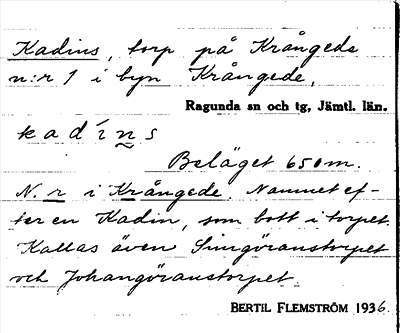 Kadins, torp på Krångede
n:r 1 i byn Krångede,
Ragunda sn och tg, Jämtl. län.
kadíns
Beläget 650 m.
N. r i Krångede. Namnet ef-
ter en Kadin, som bott i torpet.
Kallas även Simgöranstorpet
och Johangöranstorpet.
BERTIL FLEMSTRÖM 1936.